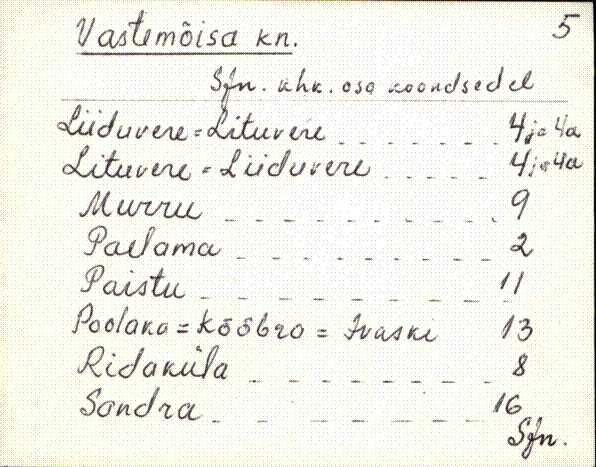 Vastemõisa kn. 5
Sfn. khk. osa koondsedel
Liiduvere = Lituvere _ _ _ _ _ _ 4 ja 4a
Lituvere = Liiduvere _ _ _ _ _ 4 ja 4a
Murru _ _ _ _ _ _ _ _ _ _ 9
Paelama _ _ _ _ _ _ _ _ _ 2
Paistu _ _ _ _ _ _ _ _ _ _ 11
Poolaka = Kõõbra = Ivaski 13
Ridaküla _ _ _ _ _ _ _ _ _ 8
Sandra _ _ _ _ _ _ _ _ _ _ 16
Sfn.